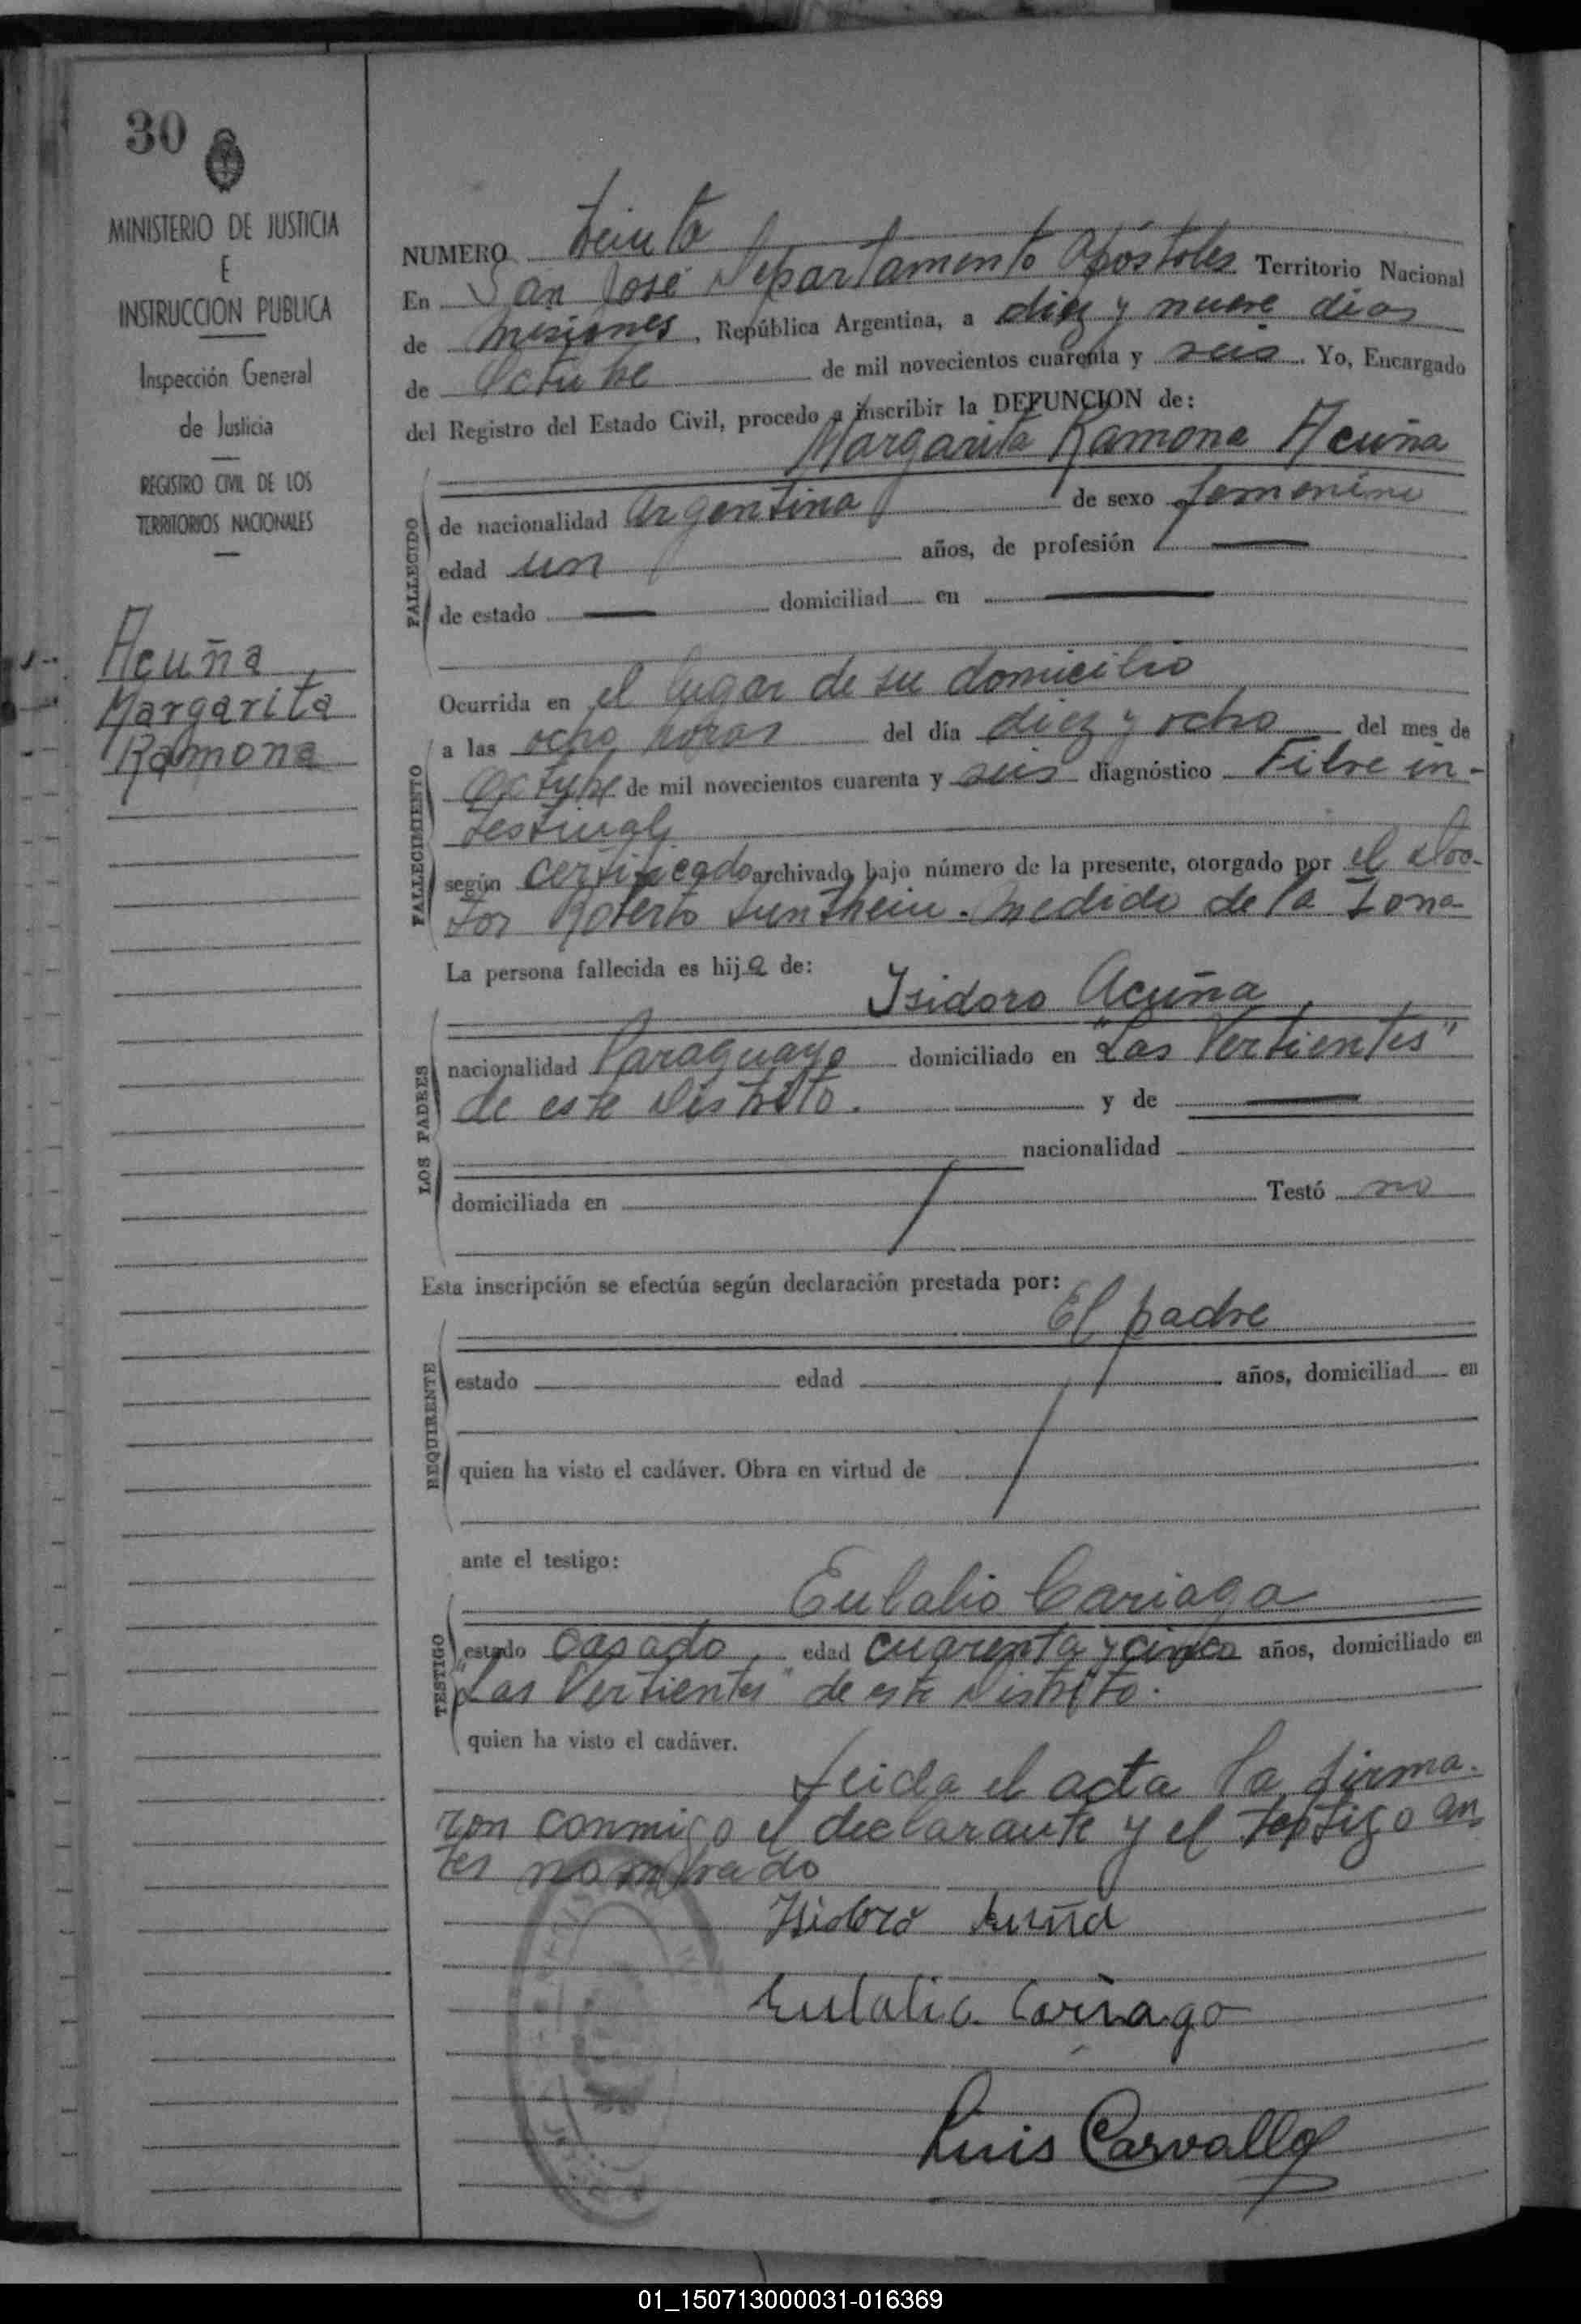 30
MINISTERIO DE JUSTICIA
E
INSTRUCCION PUBLICA
Inspección General
de Justicia
REGISTRO CIVIL DE LOS
TERRITORIOS NACIONALES
Acuña
Margarita
Ramona
NUMERO Treinta
En San José Departamento Apóstoles Territorio Nacional
de Misiones, República Argentina, a diez y nueve dias
de Octubre de mil novecientos cuarenta y seis. Yo, Encargado
del Registro del Estado Civil, procedo a inscribir la DEFUNCION de:
Margarita Ramona Acuña
FALLECIDO
de nacionalidad Argentina de sexo femenino
edad un años, de profesión —
de estado — domiciliad en —
Ocurrida en el lugar de su domicilio
FALLECIMIENTO
a las ocho horas del día diez y ocho del mes de
Octubre de mil novecientos cuarenta y seis diagnóstico Fibre in-
testinal
según certificado archivado bajo número de la presente, otorgado por el doc-
tor Roberto medido de la zona
La persona fallecida es hija de:
Isidoro Acuña
LOS PADRES
nacionalidad Paraguayo domiciliado en "Las Vertientes"
de este Distrito. y de —
nacionalidad
domiciliada en Testó no
Esta inscripción se efectúa según declaración prestada por:
El padre
REQUIRENTE
estado edad años, domiciliad en
quien ha visto el cadáver. Obra en virtud de
ante el testigo:
Eulalio Cariaga
TESTIGO
estado casado edad cuarenta y cinco años, domiciliado en
"Las Vertientes" de este Distrito.
quien ha visto el cadáver.
Leida el acta la firma-
ron conmigo el declarante y el testigo an
tes nombrado
Isidoro Acuña
Eulalio Cariago
Luis Carvallo
01_150713000031-016369